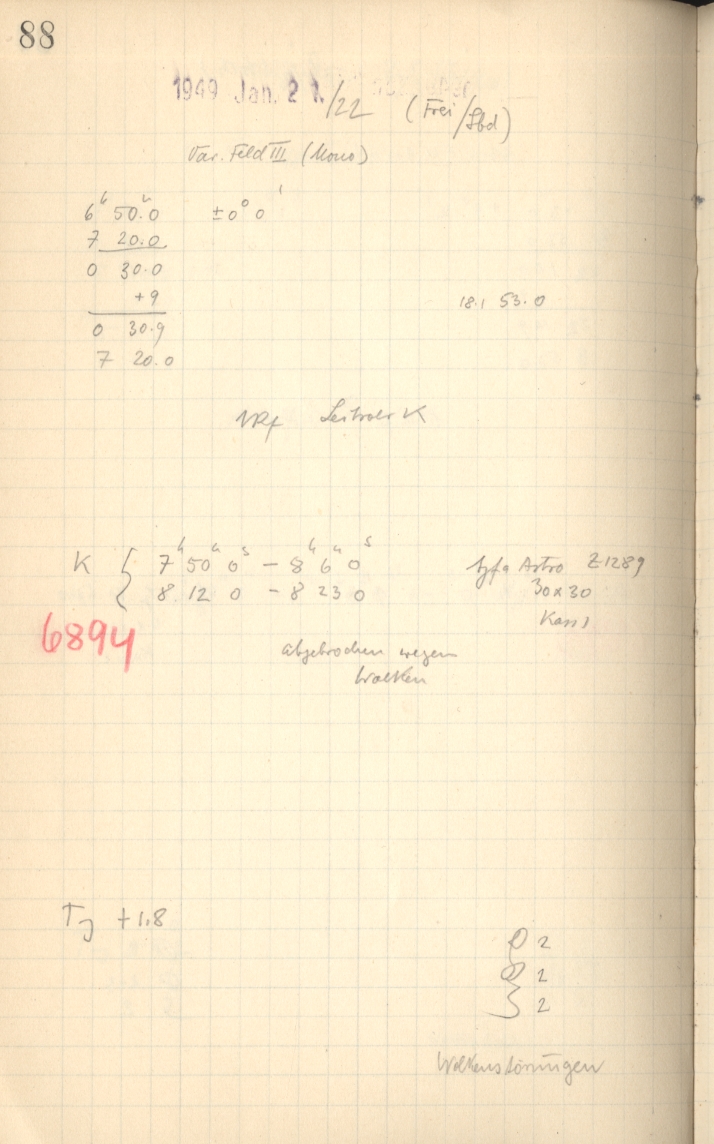 88
1949 Jan. 21./22 (Frei/Sbd)
Var. Feld III (Mono)
6h 50.m0 ±0° 0'
7 20.0
0 30.0
+9
18.1 53.0
0 30.9
7 20.0
Leitrohr K
K { 7h 50m 0s – 8h 6m 0s
8 12 0 – 8 23 0
Agfa Astro Z1289
30x30
Kass 1
6894
abgebrochen wegen
Wolken
+1.8
2
2
2
Wolkenstörungen